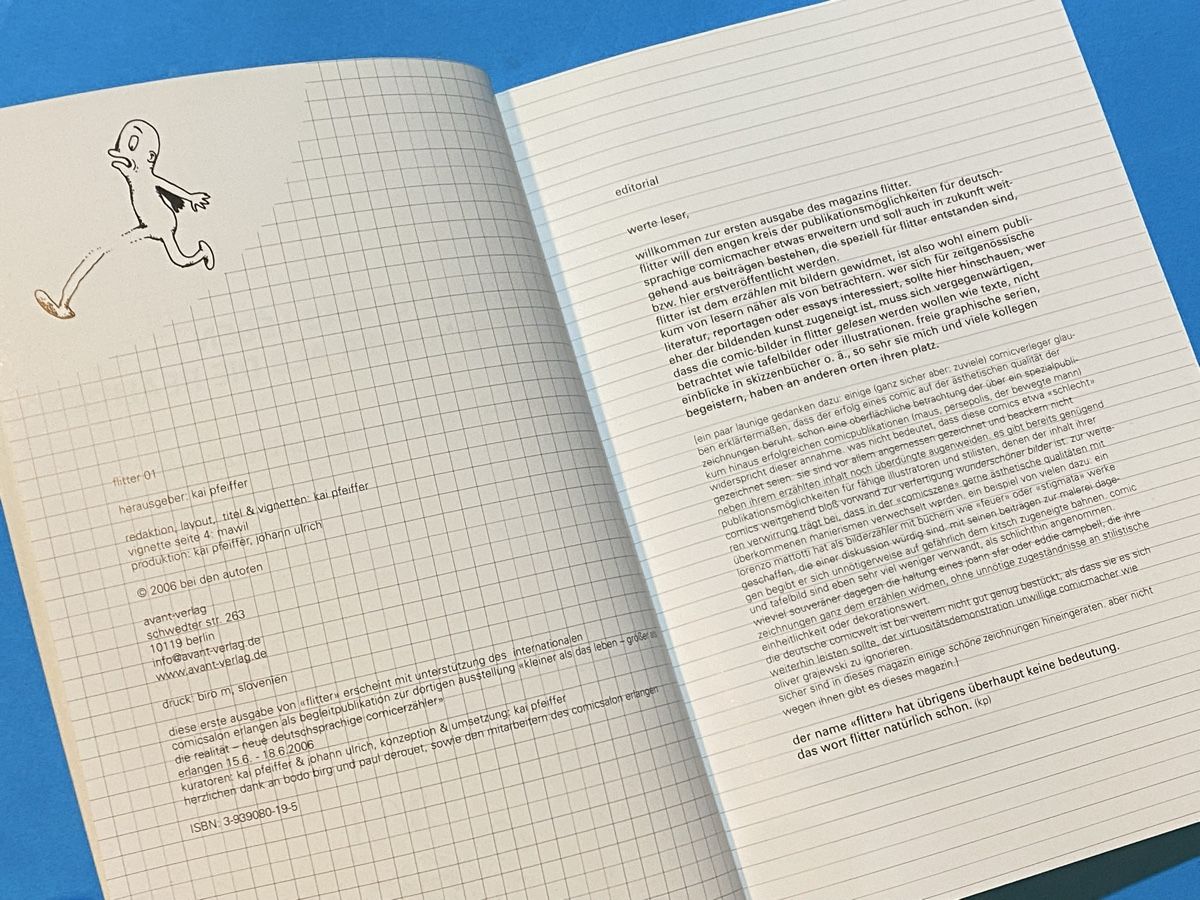 flitter 01
herausgeber: kai pfeiffer
redaktion, layout, titel & vignetten: kai pfeiffer
vignette seite 4: mawil
produktion: kai pfeiffer, johann ulrich
© 2006 bei den autoren
avant-verlag
schwedter str. 263
10119 berlin
info@avant-verlag.de
www.avant-verlag.de
druck: biro m, slovenien
diese erste ausgabe von «flitter» erscheint mit unterstützung des internationalen
comicsalon erlangen als begleitpublikation zur dortigen ausstellung «kleiner als das leben – größer als
die realität – neue deutschsprachige comicerzähler»
erlangen 15.6. - 18.6.2006
kuratoren: kai pfeiffer & johann ulrich, konzeption & umsetzung: kai pfeiffer
herzlichen dank an bodo birg und paul derouet, sowie den mitarbeitern des comicsalon erlangen
ISBN: 3-939080-19-5
editorial
werte leser,
willkommen zur ersten ausgabe des magazins flitter.
flitter will den engen kreis der publikationsmöglichkeiten für deutsch-
sprachige comicmacher etwas erweitern und soll auch in zukunft weit-
gehend aus beiträgen bestehen, die speziell für flitter entstanden sind,
bzw. hier erstveröffentlicht werden.
flitter ist dem erzählen mit bildern gewidmet, ist also wohl einem publi-
kum von lesern näher als von betrachtern. wer sich für zeitgenössische
literatur, reportagen oder essays interessiert, sollte hier hinschauen, wer
eher der bildenden kunst zugeneigt ist, muss sich vergegenwärtigen,
dass die comic-bilder in flitter gelesen werden wollen wie texte, nicht
betrachtet wie tafelbilder oder illustrationen. freie graphische serien,
einblicke in skizzenbücher o. ä., so sehr sie mich und viele kollegen
begeistern, haben an anderen orten ihren platz.
[ein paar launige gedanken dazu: einige (ganz sicher aber: zuviele) comicverleger glau-
ben erklärtermaßen, dass der erfolg eines comic auf der ästhetischen qualität der
zeichnungen beruht. schon eine oberflächliche betrachtung der über ein spezialpubli-
kum hinaus erfolgreichen comicpublikationen (maus, persepolis, der bewegte mann)
widerspricht dieser annahme. was nicht bedeutet, dass diese comics etwa «schlecht»
gezeichnet seien: sie sind vor allem angemessen gezeichnet und beackern nicht
neben ihrem erzählten inhalt noch überdüngte augenweiden. es gibt bereits genügend
publikationsmöglichkeiten für fähige illustratoren und stilisten, denen der inhalt ihrer
comics weitgehend bloß vorwand zur verfertigung wunderschöner bilder ist. zur weite-
ren verwirrung trägt bei, dass in der «comicszene» gerne ästhetische qualitäten mit
überkommenen manierismen verwechselt werden. ein beispiel von vielen dazu: ein
lorenzo mattotti hat als bilderzähler mit büchern wie «feuer» oder «stigmata» werke
geschaffen, die einer diskussion würdig sind. mit seinen beiträgen zur malerei dage-
gen begibt er sich unnötigerweise auf gefährlich dem kitsch zugeneigte bahnen. comic
und tafelbild sind eben sehr viel weniger verwandt, als schlichthin angenommen.
wieviel souveräner dagegen die haltung eines joann sfar oder eddie campbell, die ihre
zeichnungen ganz dem erzählen widmen, ohne unnötige zugeständnisse an stilistische
einheitlichkeit oder dekorationswert.
die deutsche comicwelt ist bei weitem nicht gut genug bestückt, als dass sie es sich
weiterhin leisten sollte, der virtuositätsdemonstration unwillige comicmacher wie
oliver grajewski zu ignorieren.
sicher sind in dieses magazin einige schöne zeichnungen hineingeraten. aber nicht
wegen ihnen gibt es dieses magazin.]
der name «flitter» hat übrigens überhaupt keine bedeutung.
das wort flitter natürlich schon. (kp)